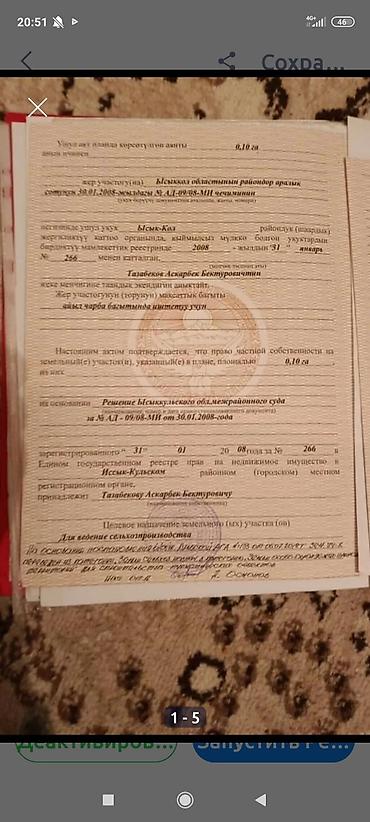 20:51
4G+
46
Сохра...
Ушул акт планда көрсөтүлгөн аянты 0,10 га
анын ичинен
жер участогу(на) Ысыккөл областынын райондор аралык
сотунун 30.01.2008-жылдагы № АД-09/08-МИ чечиминин
негизинде ушул укук Ысык-Көл райондук (шаардык)
жергиликтүү каттоо органында, кыймылсыз мүлккө болгон укуктардын
бирдиктүү мамлекеттик реестринде 2008 -жылдын "31" январь
№ 266 менен катталган,
Тазабеков Аскарбек Бектуровичтин
жеке менчигине таандык экендигин аныктайт.
Жер участогунун (торунун) максаттык багыты
айыл чарба багытында иштетүү үчүн
Настоящим актом подтверждается, что право частной собственности на
земельный(е) участок(и), указанный(е) в плане, площадью 0,10 га
из них
на основании Решение Ысыккульского обл.межрайонного суда
за № АД - 09/08-МИ от 30.01.2008-года
зарегистрированного "31" 01 2008 года за № 266 в
Едином государственном реестре прав на недвижимое имущество в
Иссык-Кульском районном (городском) местном
регистрационном органе,
принадлежит Тазабекову Аскарбек Бектуровичу
Целевое назначение земельного (ых) участка (ов)
Для ведение сельхозпроизводства
На основании постановления
А. Осмонов
1 - 5
Деактивиров...
Запустить Ре...